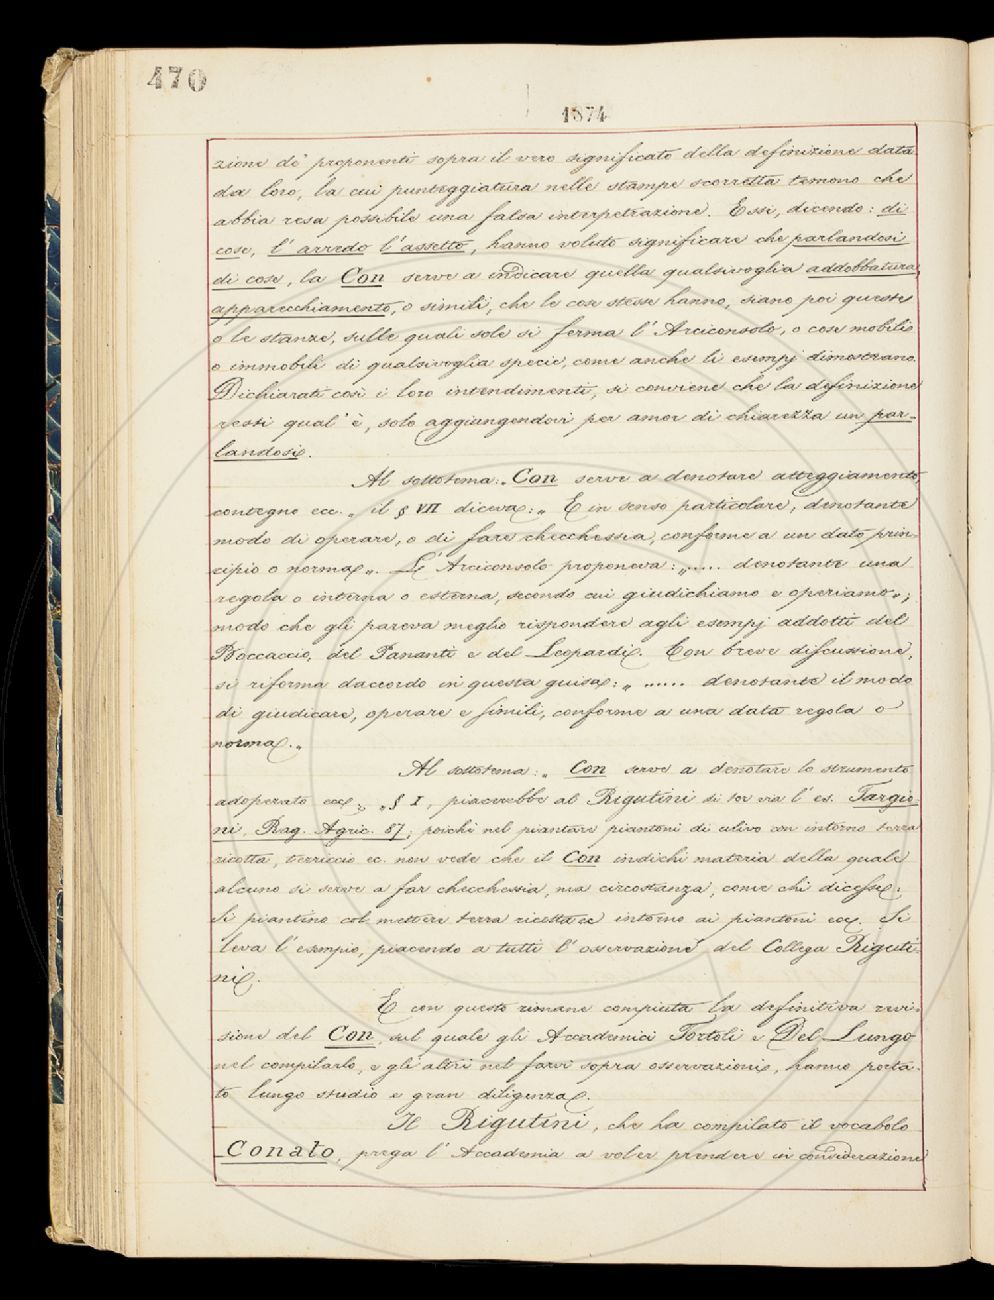 470
1874
zione de' proponenti sopra il vero significato della definizione data
da loro, la cui punteggiatura nelle stampe scorretta temono che
abbia resa possibile una falsa interpetrazione. Essi, dicendo: di
cose, l'arredo l'assetto, hanno voluto significare che parlandosi
di cose, la Con serve a indicare quella qualsivoglia addobbatura,
apparecchiamento, o simili, che le cose stesse hanno, siano poi queste
o le stanze, sulle quali sole si ferma l'Arciconsolo, o cose mobili
o immobili di qualsivoglia specie, come anche li esempj dimostrano.
Dichiarati così i loro intendimenti, si conviene che la definizione
resti qual'è, solo aggiungendovi per amor di chiarezza un par-
landosi.
Al sottotema: „Con serve a denotare atteggiamento,
contegno ecc. „ il § VII diceva: „ E in senso particolare, denotante
modo di operare, o di fare checchessia, conforme a un dato prin-
cipio o norma„. L'Arciconsolo proponeva: „..... denotante una
regola o interna o esterna, secondo cui giudichiamo e operiamo„;
modo che gli pareva meglio rispondere agli esempj addotti del
Boccaccio, del Pananti e del Leopardi. Con breve discussione,
si riforma daccordo in questa guisa: „ ...... denotante il modo
di giudicare, operare e simili, conforme a una data regola o
norma.„
Al sottotema: „ Con serve a denotare lo strumento
adoperato ecc „ § I, piacerebbe al Rigutini si tor via l'es. Targio-
ni, Rag. Agric. 87; poichè nel piantare piantoni di ulivo con intorno terra
ricotta, terriccio ec. non vede che il Con indichi materia della quale
alcuno si serve a far checchessia, ma circostanza; come chi dicesse:
Si piantino col mettere terra ricotta ec intorno ai piantoni ecc. Si
leva l'esempio, piacendo a tutti l'osservazione del Collega Riguti-
ni.
E con questo rimane compiuta la definitiva revi-
sione del Con, sul quale gli Accademici Tortoli e Del Lungo
nel compilarlo, e gli altri nel farvi sopra osservazioni, hanno porta-
to lungo studio e gran diligenza.
Il Rigutini, che ha compilato il vocabolo
Conato, prega l'Accademia a voler prendere in considerazione